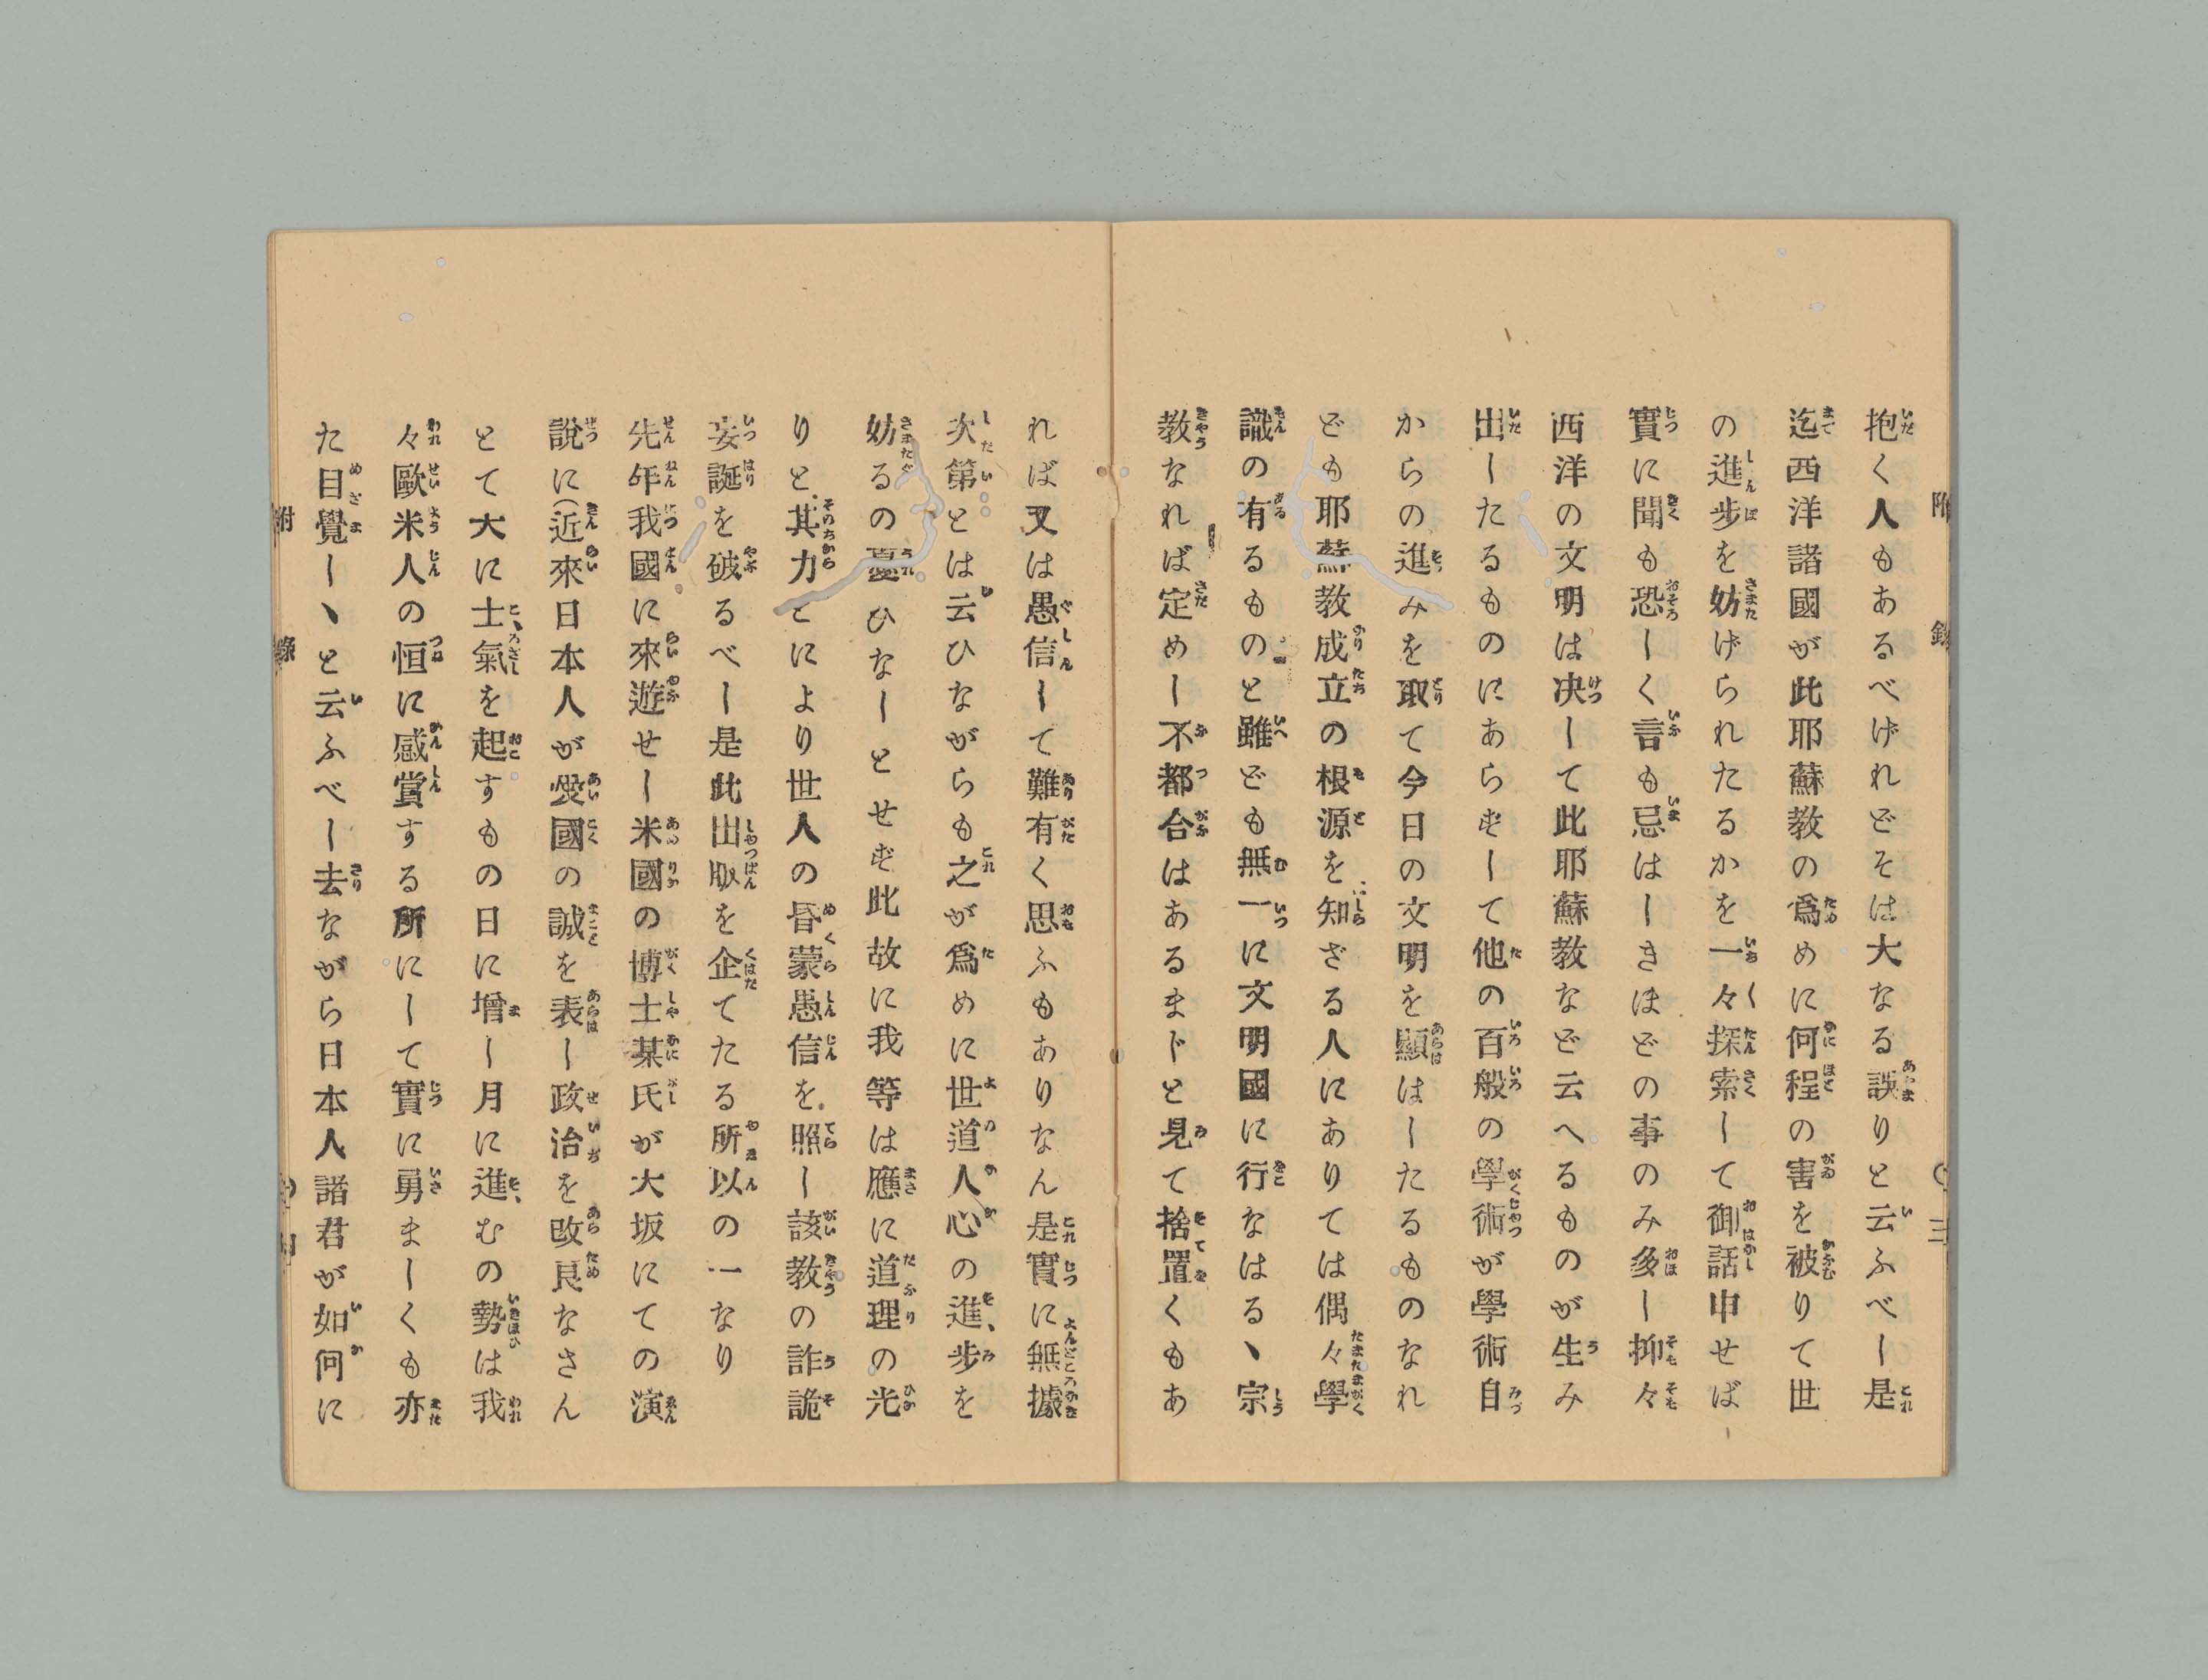 附錄 〇三
抱く人もあるべけれどそは大なる誤りと云ふべし是
迄西洋諸國が此耶蘇教の爲めに何程の害を被りて世
の進步を妨げられたるかを一々探索して御話申せば
實に聞も恐しく言も忌はしきほどの事のみ多し抑々
西洋の文明は决して此耶蘇教など云へるものが生み
出したるものにあらずして他の百般の學術が學術自
からの進みを取て今日の文明を顯はしたるものなれ
ども耶蘇教成立の根源を知ざる人にありては偶々學
識の有るものと雖ども無一に文明國に行なはるヽ宗
教なれば定めし不都合はあるまじと見て捨置くもあ
れば又は愚信して難有く思ふもありなん是實に無據
次第とは云ひながらも之が爲めに世道人心の進步を
妨るの憂ひなしとせず此故に我等は應に道理の光
りと其力とにより世人の昏蒙愚信を照し該教の詐詭
妄誕を破るべし是此出版を企てたる所以の一なり
先年我國に來遊せし米國の博士某氏が大坂にての演
說に(近來日本人が愛國の誠を表し政治を改良なさん
とて大に士氣を起すもの日に增し月に進むの勢は我
々歐米人の恒に感賞する所にして實に勇ましくも亦
た目覺しヽと云ふべし去ながら日本人諸君が如何に
附錄